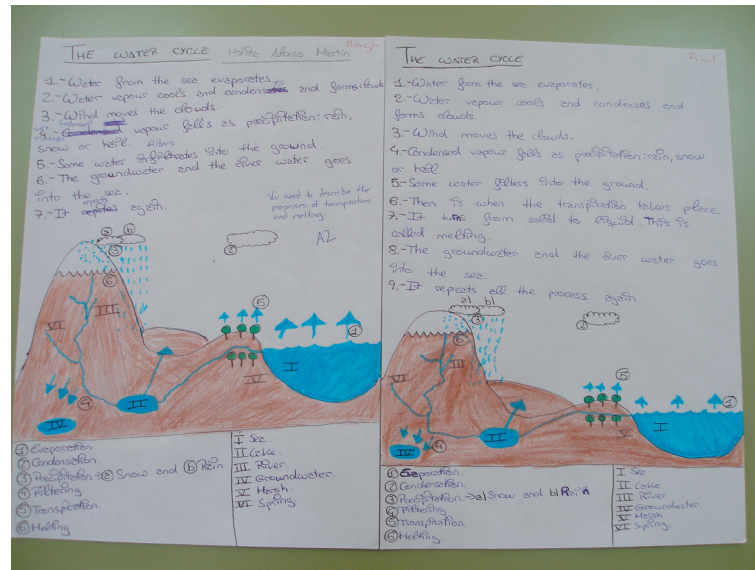 THE WATER CYCLE
Rough
1.-Water from the sea evaporates.
2.-Water vapour cools and condenses and forms clouds
3.-Wind moves the clouds.
vapour falls as precipitation: rain,
snow or hail. filters
5.-Some water into the ground.
6.-The groundwater and the river water goes
into the sea.
7.-It repeats again.
You need to describe the
processes of transpiration
and melting
A2
a b
3
2
6
III
VI
5
1
I
V
II
4
IV
1 Evaporation
2 Condensation.
3 Precipitation → a Snow and b Rain
4 Filtering
5 Transpiration
6 Melting
I Sea
II Lake
III River
IV Groundwater
V Marsh
VI Spring
THE WATER CYCLE
Final
1-Water from the sea evaporates.
2-Water vapour cools and condenses and
forms clouds.
3.-Wind moves the clouds.
4.-Condensed vapour falls as precipitation: rain, snow
or hail.
5.-Some water filters into the ground.
6.-Then is when the transpiration takes place
7.-It turns from solid to liquid. This is
called melting.
8.-The groundwater and the river water goes
into the sea.
9.-It repeats all the process again.
a) b)
3
2
6
III
VI
5
1
I
V
II
4
IV
1 Evaporation
2 Condensation.
3 Precipitation → a) Snow and b) Rain
4 Filtering
5 Transpiration
6 Melting
I Sea
II Lake
III River
IV Groundwater
V Marsh
VI Spring.